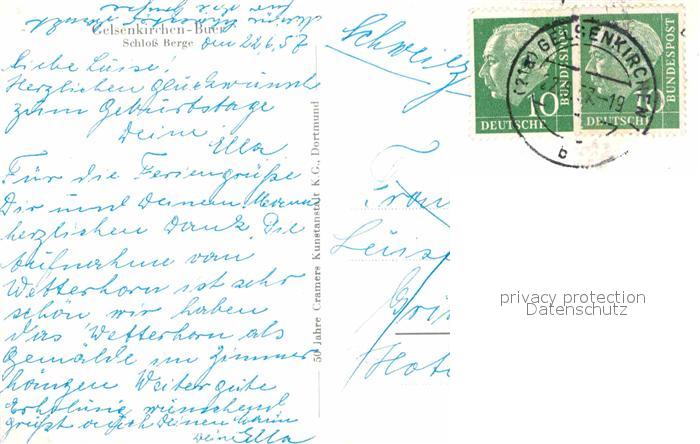 Gelsenkirchen-Buer
Schloß Berge
den 22.6.57
Liebe Luise!
Herzlichen Glückwunsch
zum Geburtstage
Deine
Ella
Für die Feriengrüße
Dir und Deinem Mann
herzlichen Dank. Die
Aufnahme vom
Wetterhorn ist sehr
schön wir haben
das Wetterhorn als
Gemälde im Zimmer
hängen Weiter gute
Erholung wünschend
grüßt auch Deinen Mann
Deine Ella
50 Jahre Cramers Kunstanstalt K.G., Dortmund
Schweiz
Frau
Luise
Hote
10
DEUTSCHE
BUNDESPOST
DEUTSCHE
BUNDESPOST
(21a) GELSENKIRCHEN
-19
b
privacy protection
Datenschutz